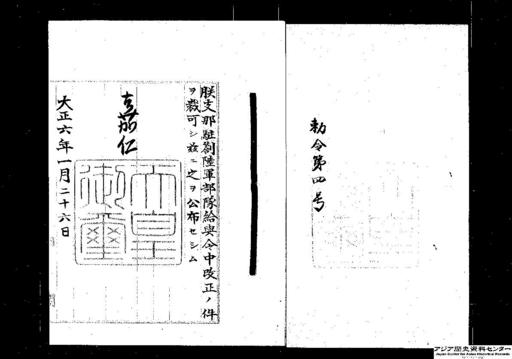 勅令第四号
朕支那駐劄陸軍部隊給與令中改正ノ件
ヲ裁可シ玆ニ之ヲ公布セシム
嘉仁
天皇御璽
大正六年一月二十六日
アジア歴史資料センター
Japan Center for Asian Historical Records